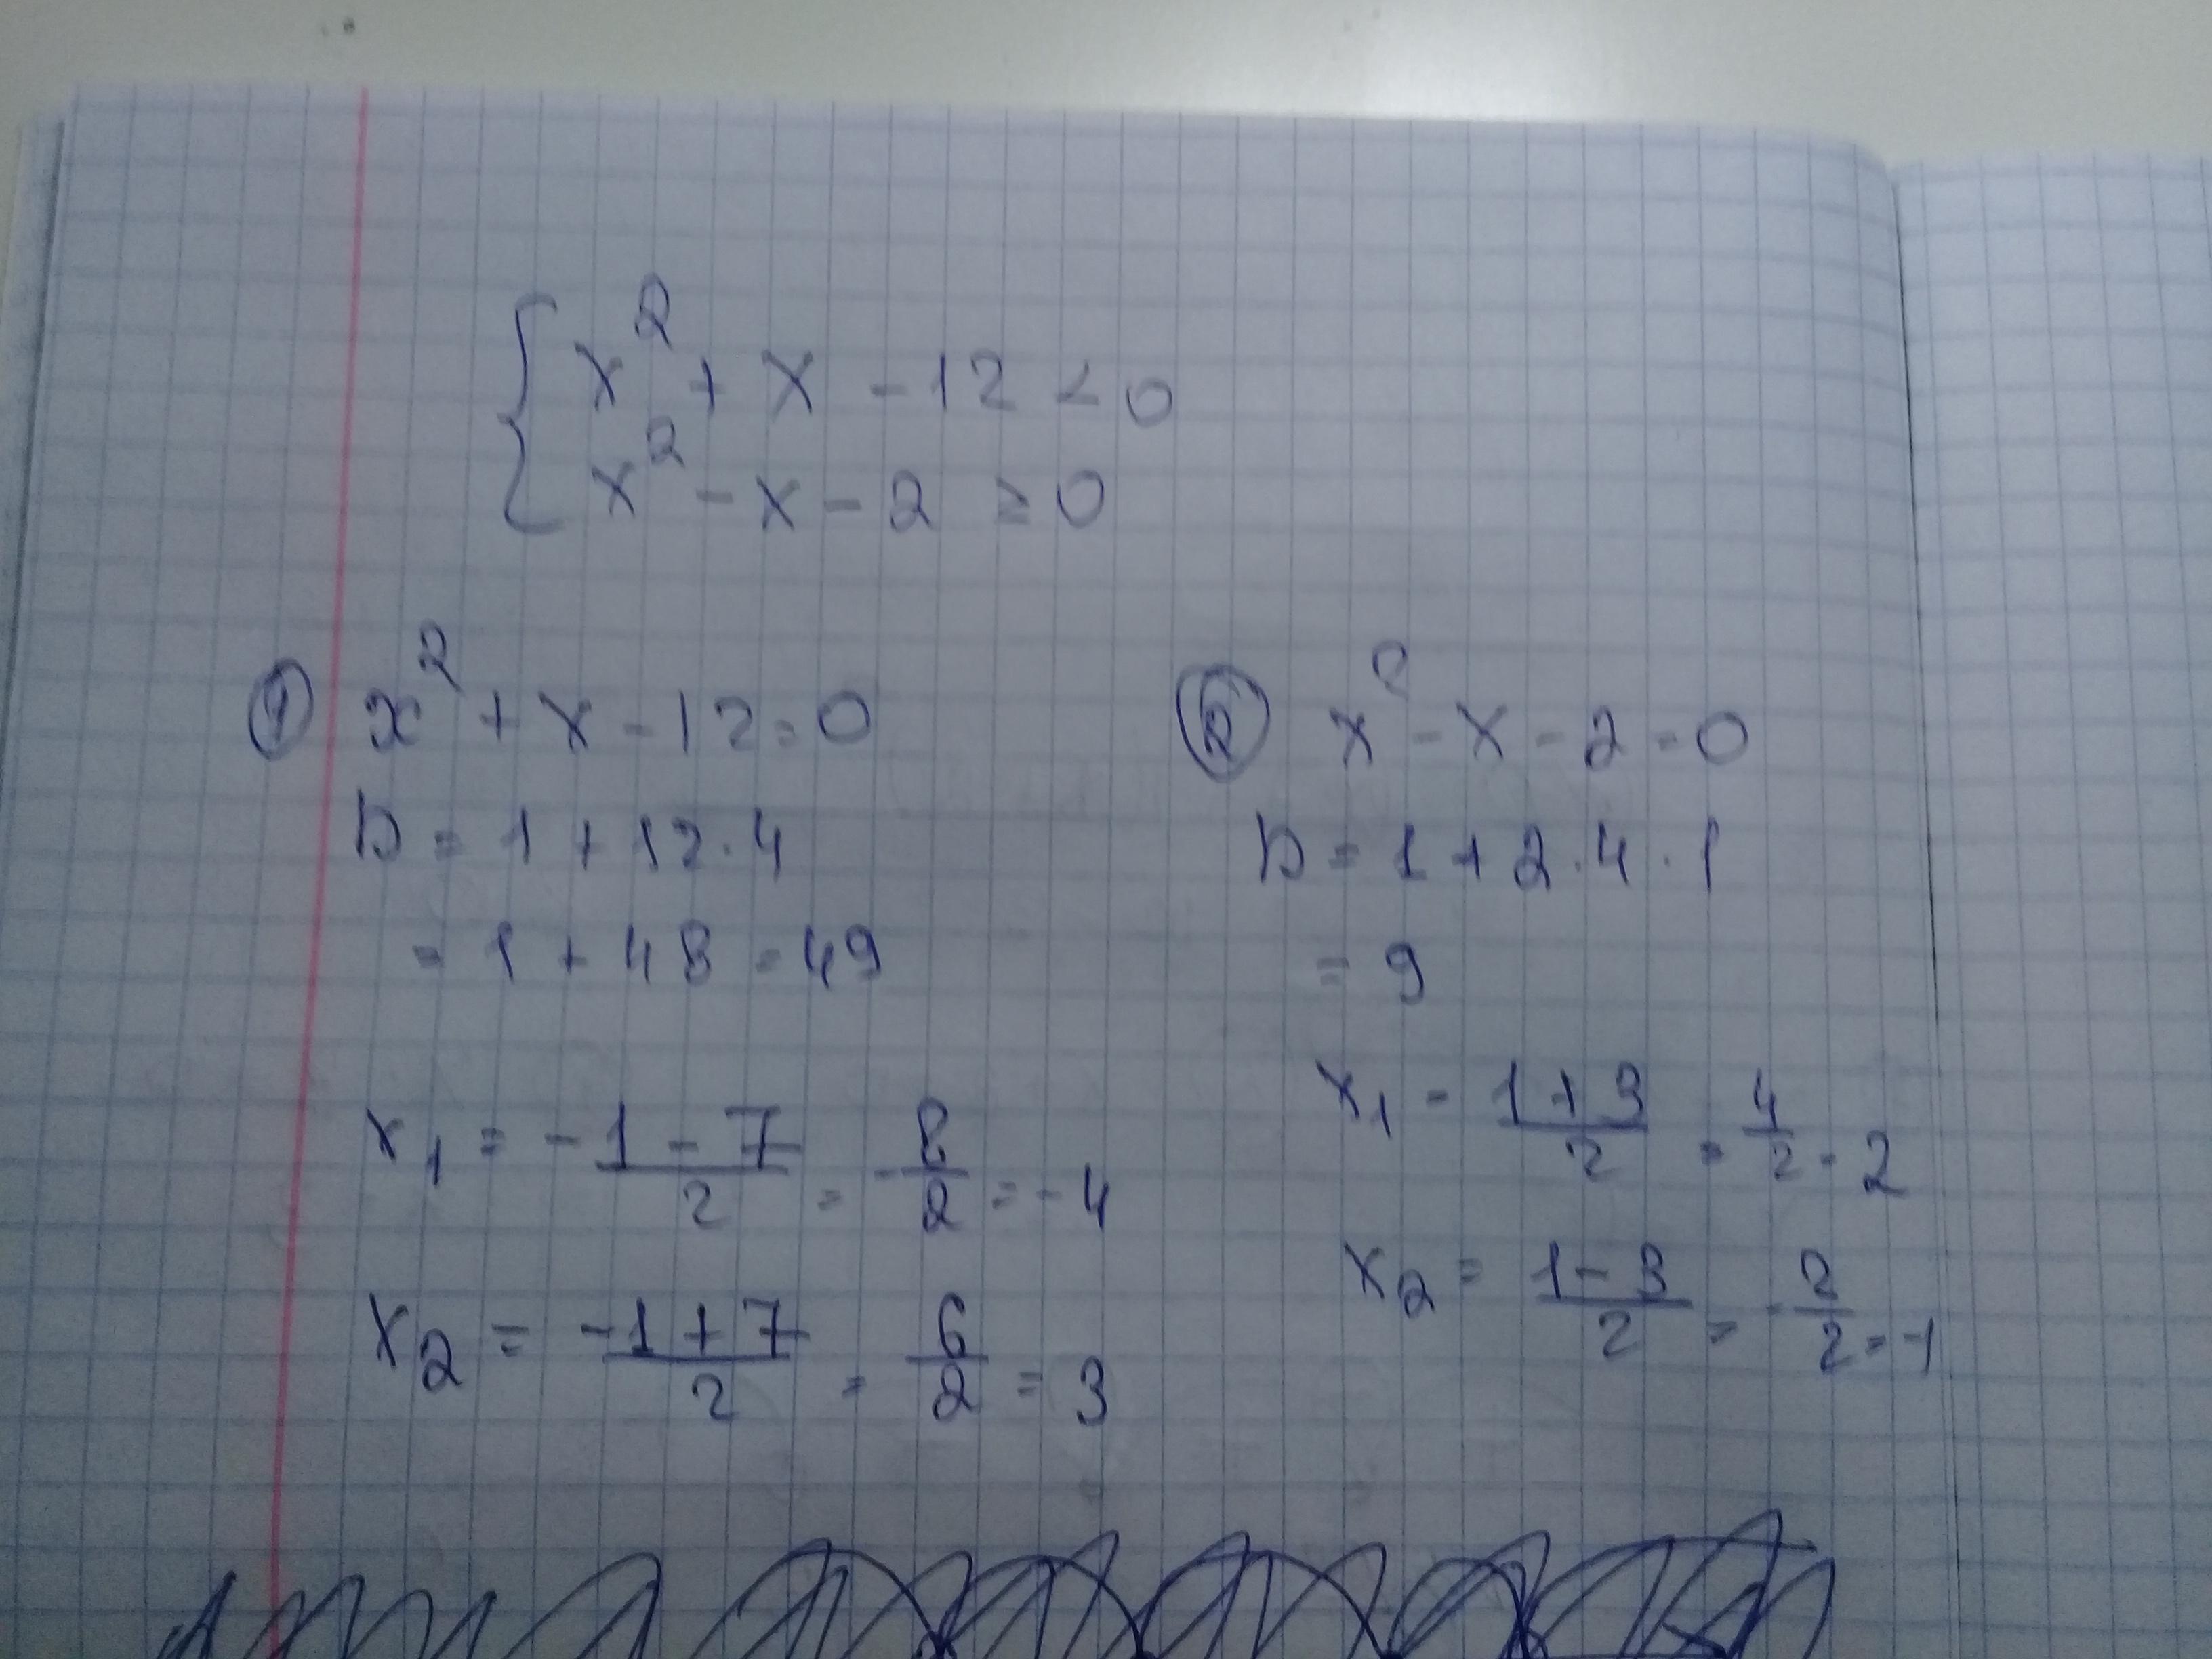 x² + x - 12 < 0
x² - x - 2 ≥ 0
① x² + x - 12 = 0
D = 1 + 12 · 4
= 1 + 48 = 49
x₁ = -1 - 7 / 2 = - 8/2 = - 4
x₂ = -1 + 7 / 2 = 6/2 = 3
② x² - x - 2 = 0
D = 1 + 2 · 4 · 1
= 9
x₁ = 1 + 3 / 2 = 4/2 = 2
x₂ = 1 - 3 / 2 = - 2/2 = -1